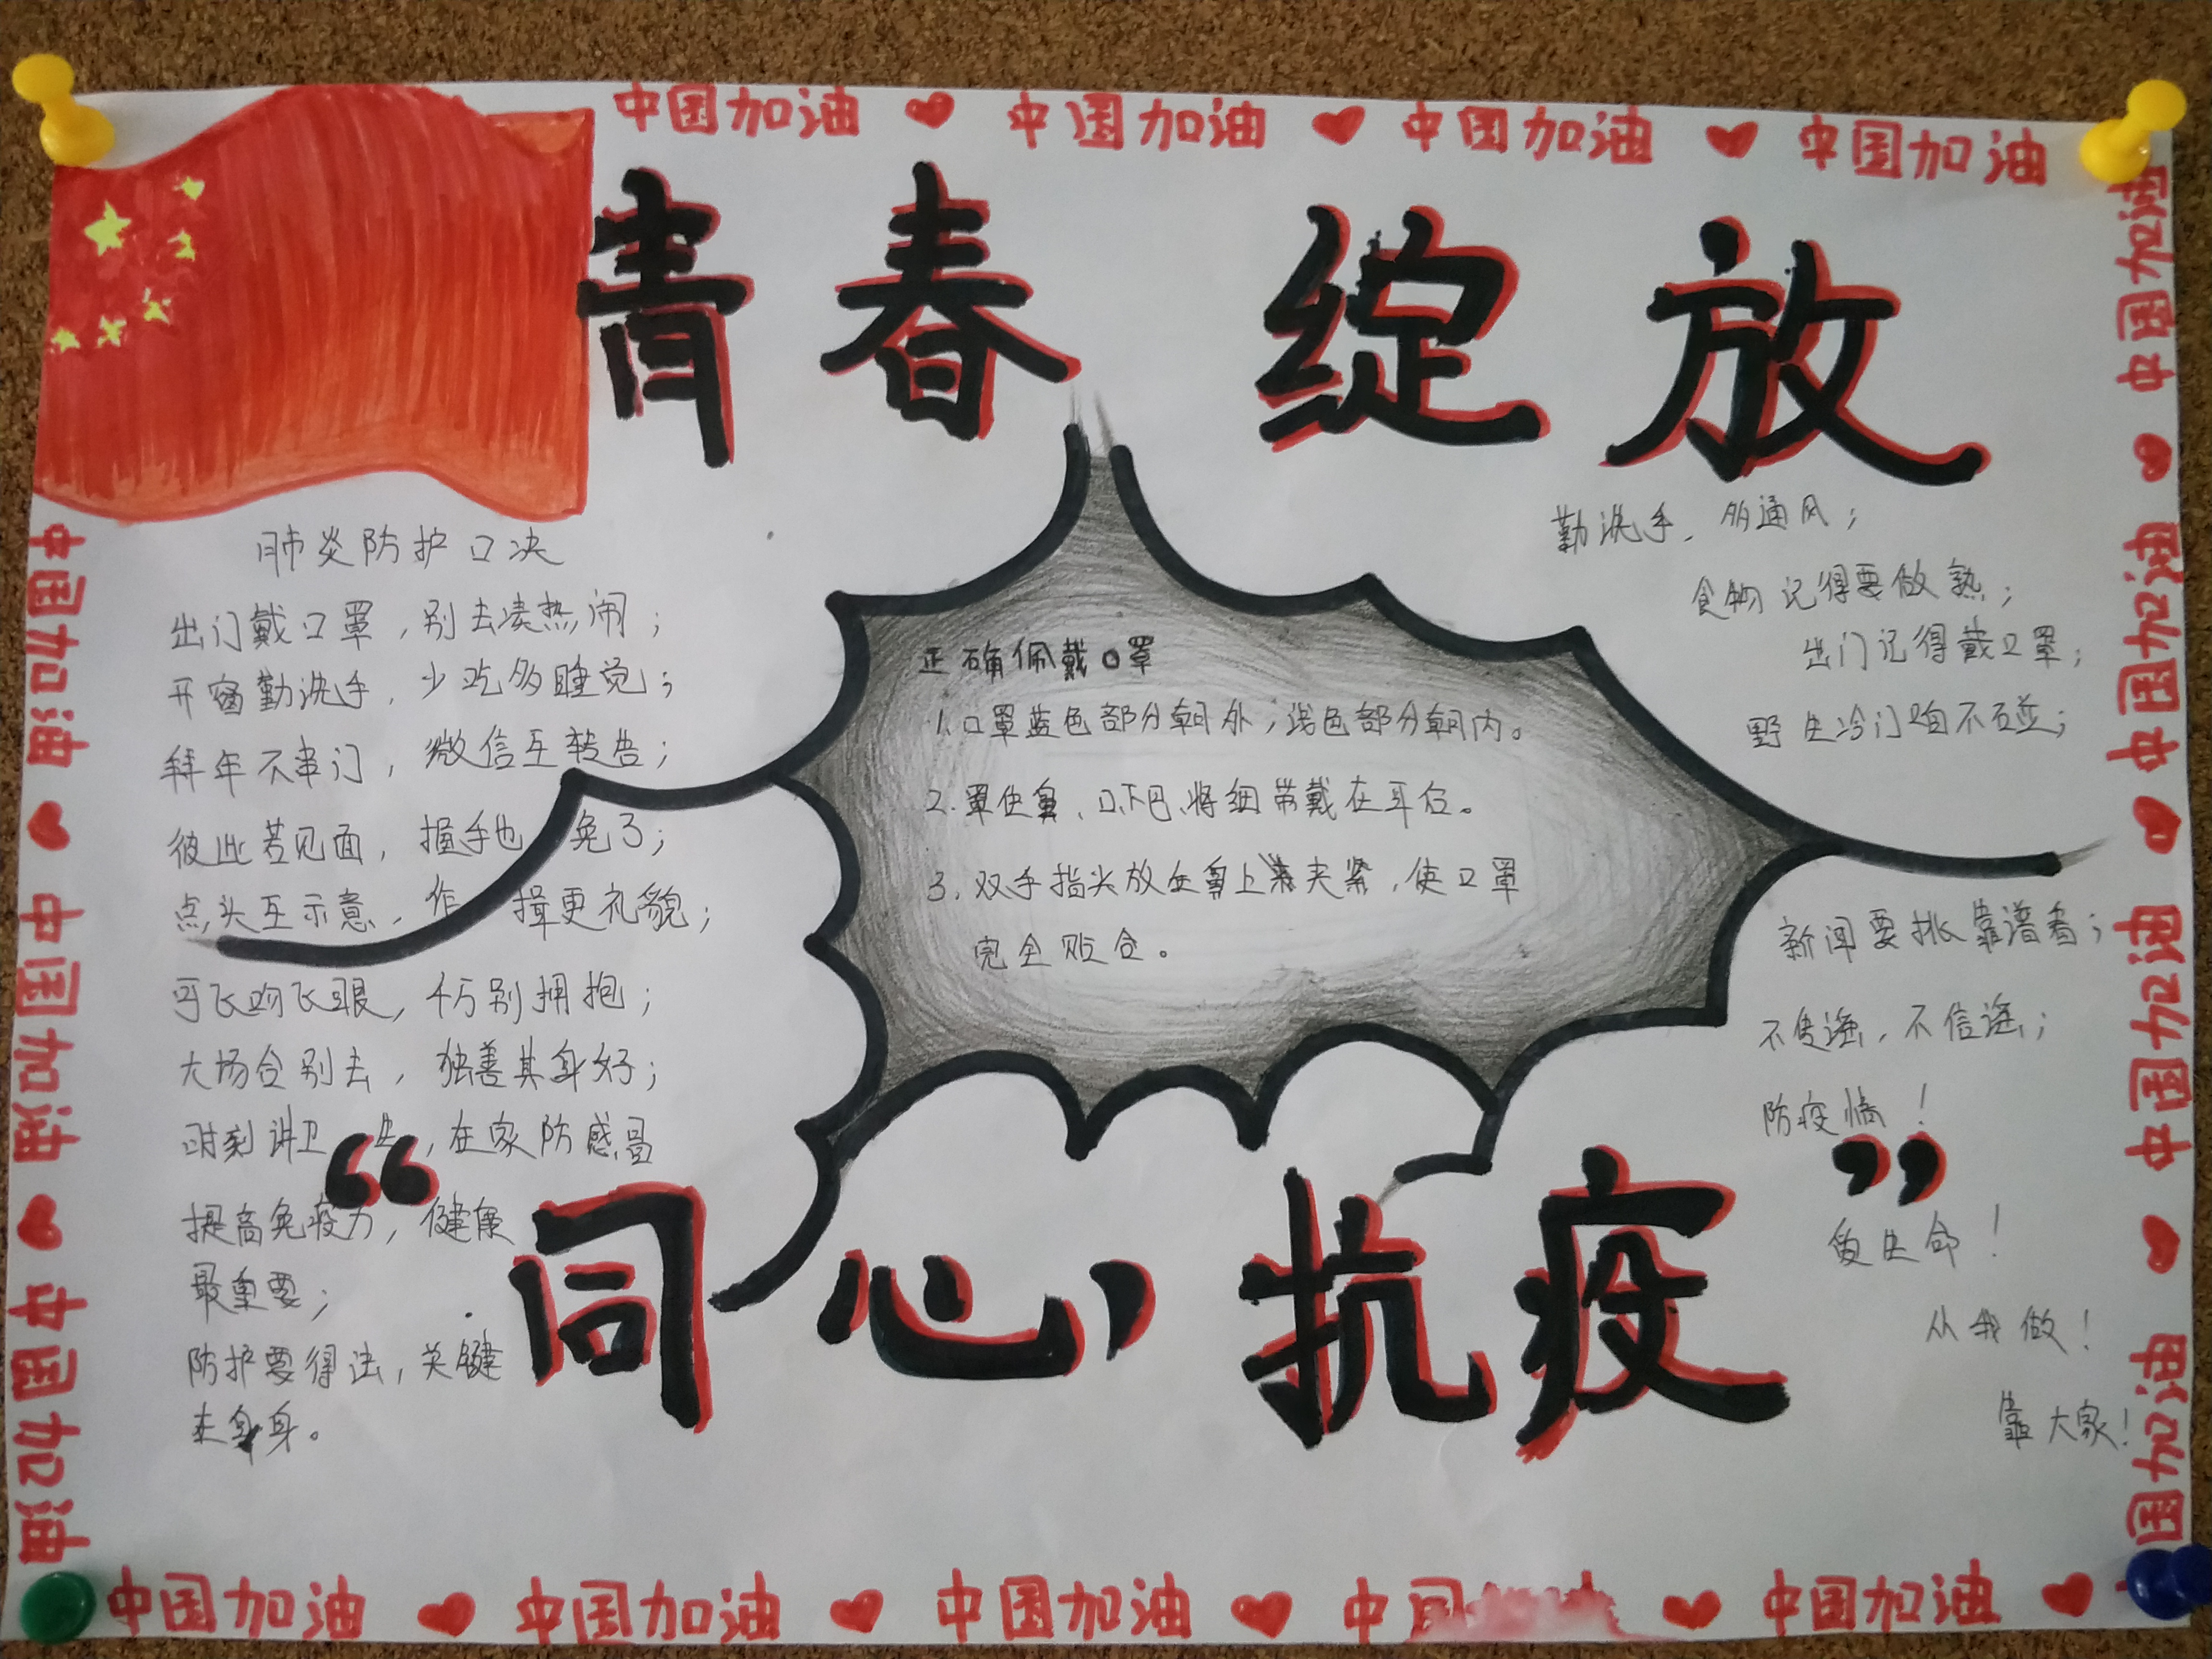 中国加油 中国加油 中国加油 中国加油
青春 绽放
肺炎防护口决
出门戴口罩，别去凑热闹；
开窗勤洗手，少吃多睡觉；
拜年不串门，微信互转告；
彼此若见面，握手也免了；
点头互示意，作揖更礼貌；
可飞吻飞眼，千万别拥抱；
大场合别去，独善其身好；
时刻讲卫生，在家防感冒
提高免疫力，健康
最重要；
防护要得法，关键
在自身。
正确佩戴口罩
1.口罩蓝色部分朝外；浅色部分朝内。
2.罩住鼻、口、下巴、将细带戴在耳后。
3.双手指头放在鼻上夹紧，使口罩
完全贴合。
勤洗手，多通风；
食物记得要做熟；
出门记得戴口罩；
野生冷门咱不碰；
新闻要挑靠谱看；
不传谣，不信谣；
防疫情！
生命！
从我做！
靠大家！
“同心抗疫”
中国加油 中国加油 中国加油
中国加油 中国加油 中国加油 国加油
中国加油 中国加油 中国加油 中国 中国加油